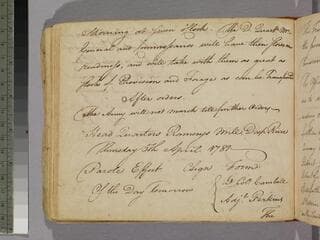 Morning at Seven oClock. The D. Quartr Mr
General and Commissaries will have them
readiness, and will take with them as great a
Stock of Provision and Forage as can be Transported
After orders.
The Army will not march till further Orders
Head Quarters Ramseys Mill Deep River
Thursday 5th April 1781
Parole Effort Csign Form
Of the Day Tomorrow
Lt Col. Campbell
Adjt. Perkins
The